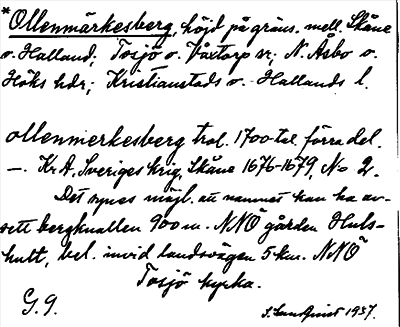 *Ollenmärkesberg, höjd på gräns. mell. Skåne
o. Halland; Tosjö o. Våxtorp sr; N. Åsbo o.
Höks hdr; Kristianstads o. Hallands l.
ollenmerkesberg trol. 1700-tal. förra del.
—. Kr A, Sveriges krig, Skåne 1676-1679, No 2.
Det synes möjl. att namnet kan ha av-
sett bergknallen 900 m. NNÖ gården Huls-
hult, bel. invid landsvägen 5 km. NNÖ
Tosjö kyrka.
G. 9.
S. Lundquist 1937.